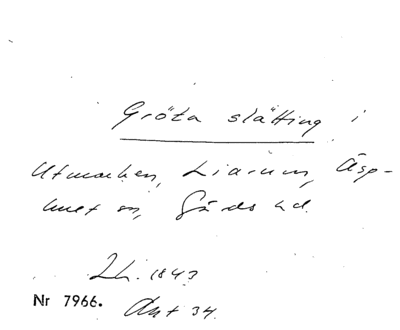 Gröta slätting i
Utmarken, Liarum, Äsp-
huet m, Gärds hd.
Lh. 1843
Nr 7966. Ant 34.